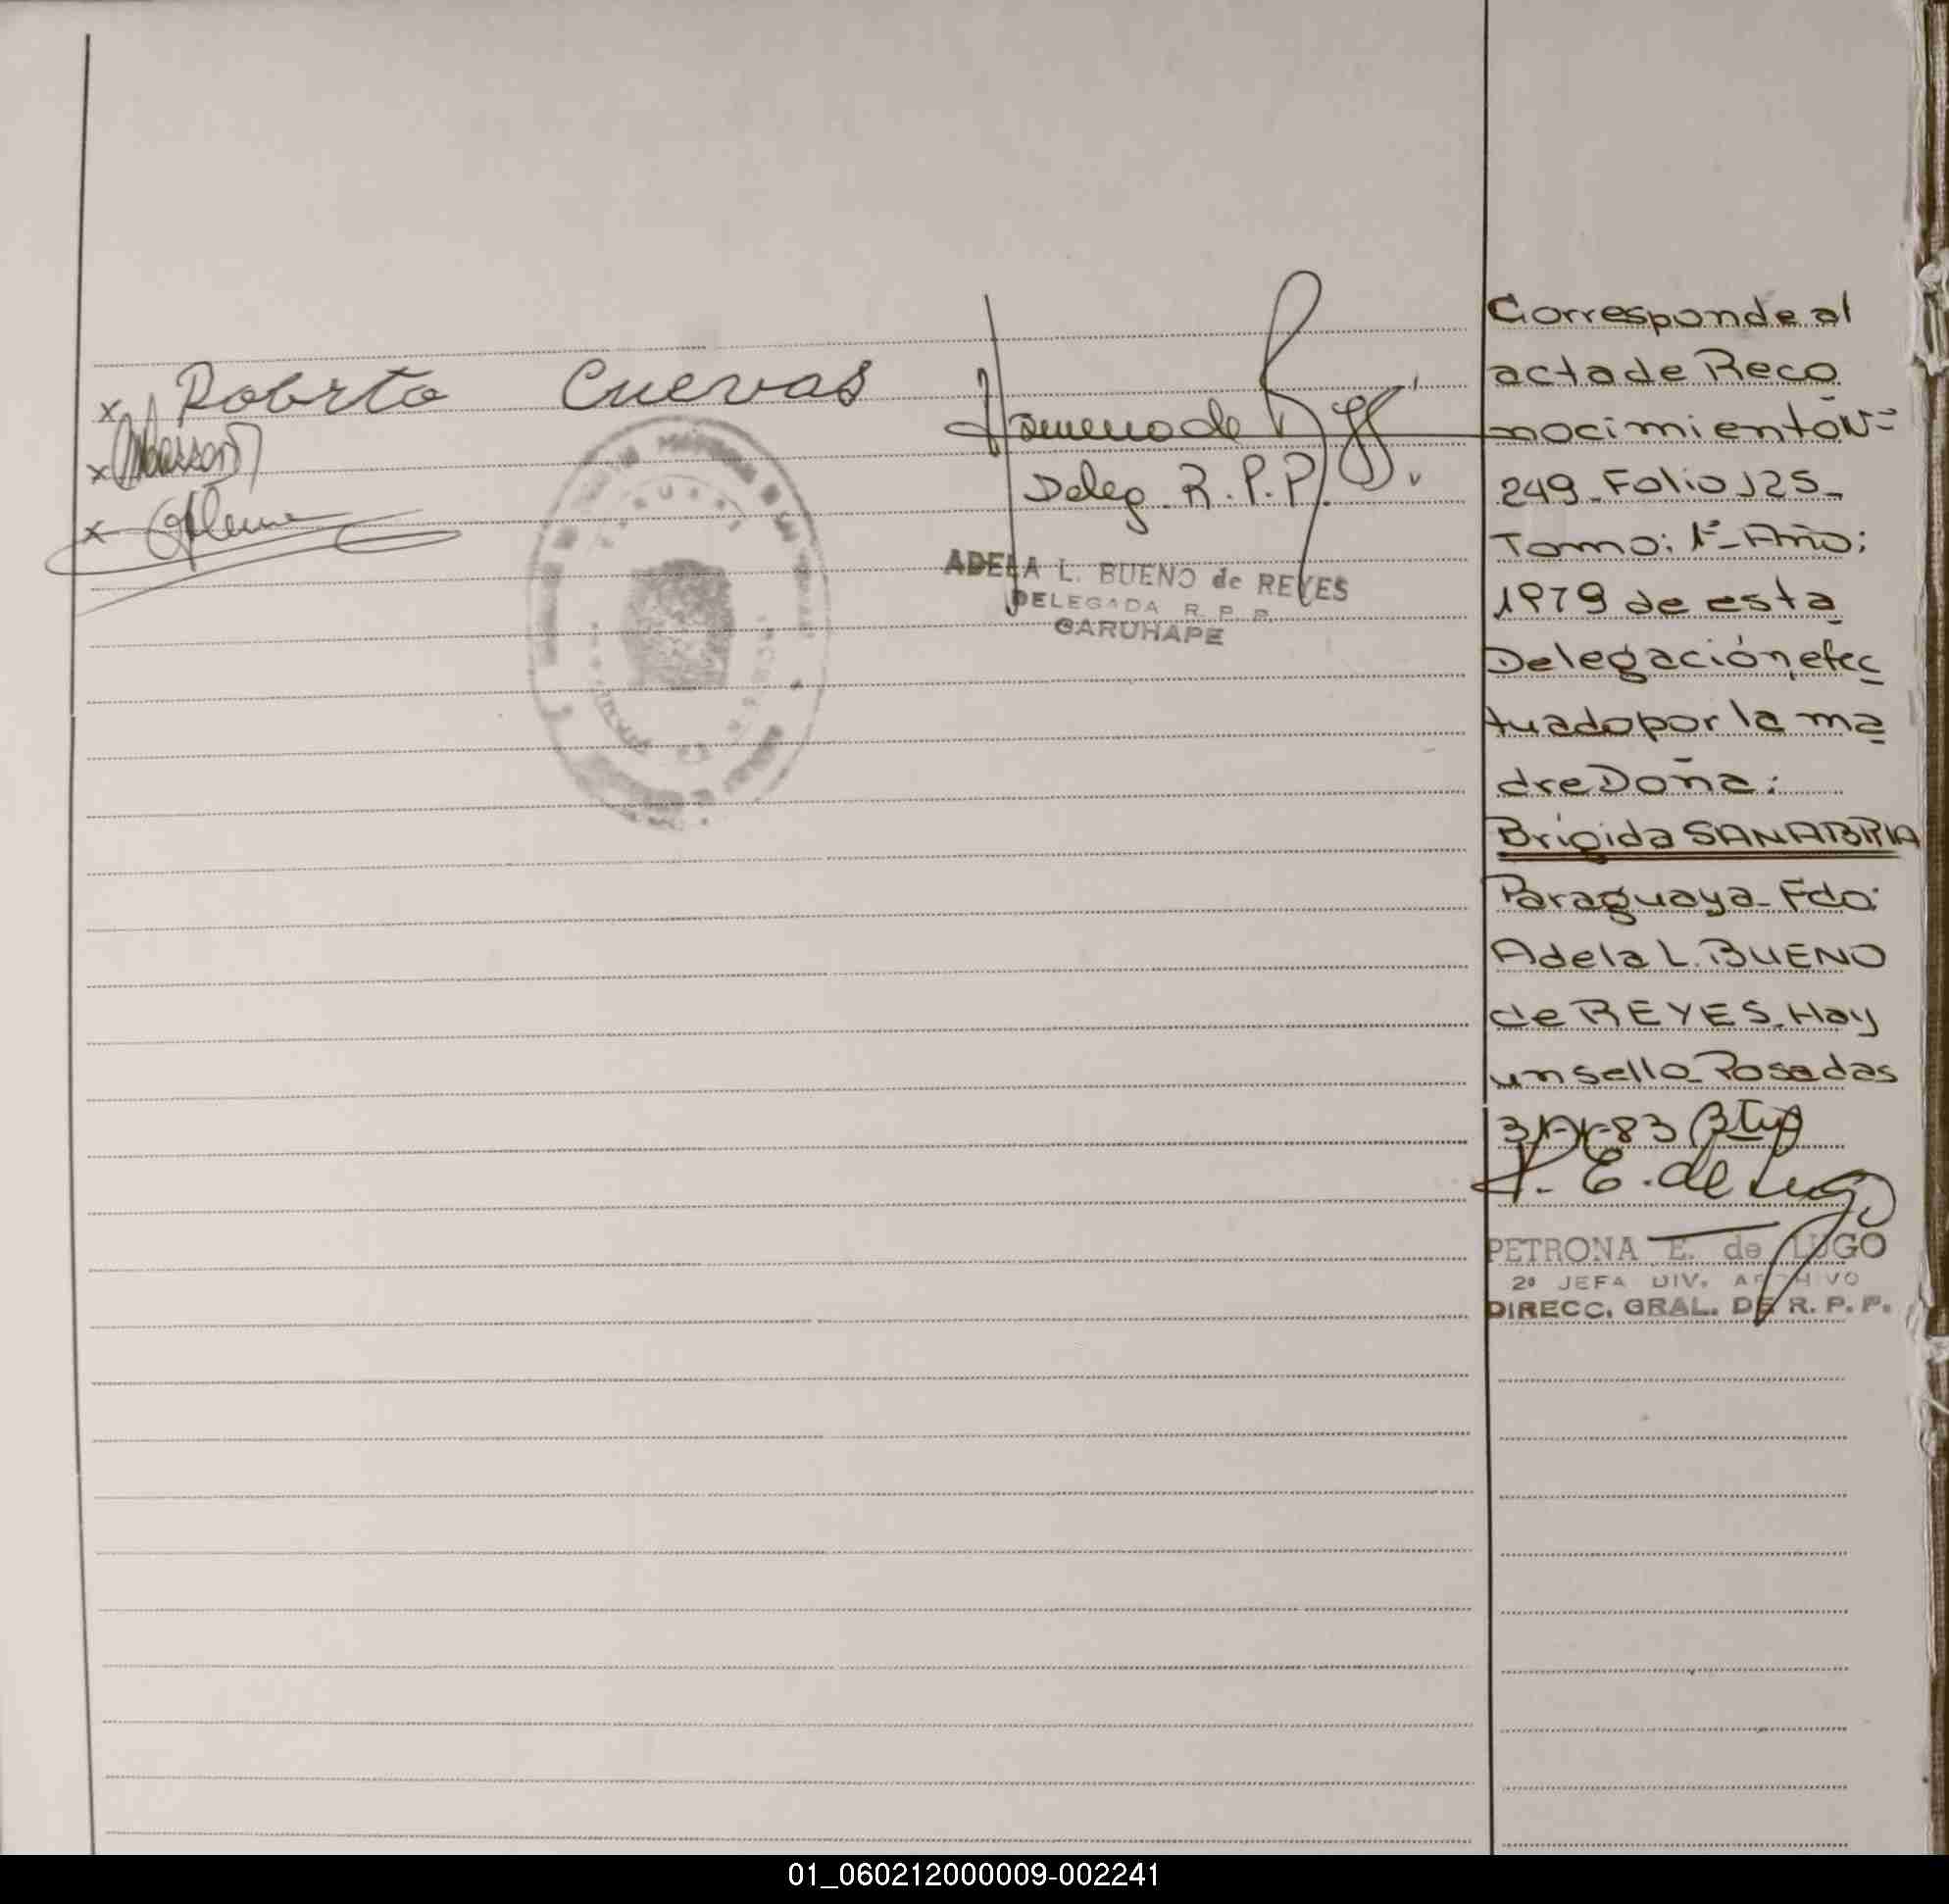 x Roberto Cuevas
x
x
Deleg. R.P.P.
ADELA L. BUENO de REYES
DELEGADA R. P. P.
GARUHAPE
Corresponde al
acta de Reco
nocimiento Nº
249_Folio 125_
Tomo: 1º_Año:
1979 de esta
Delegación, efec
tuado por la ma
dre Doña:
Brígida SANABRIA
Paraguaya_Fdo:
Adela L. BUENO
de REYES. Hay
un sello_Posadas
P. E. de Lugo
PETRONA E. de LUGO
2º JEFA DIV. ARCHIVO
DIRECC. GRAL. DE R. P. P.
01_060212000009-002241